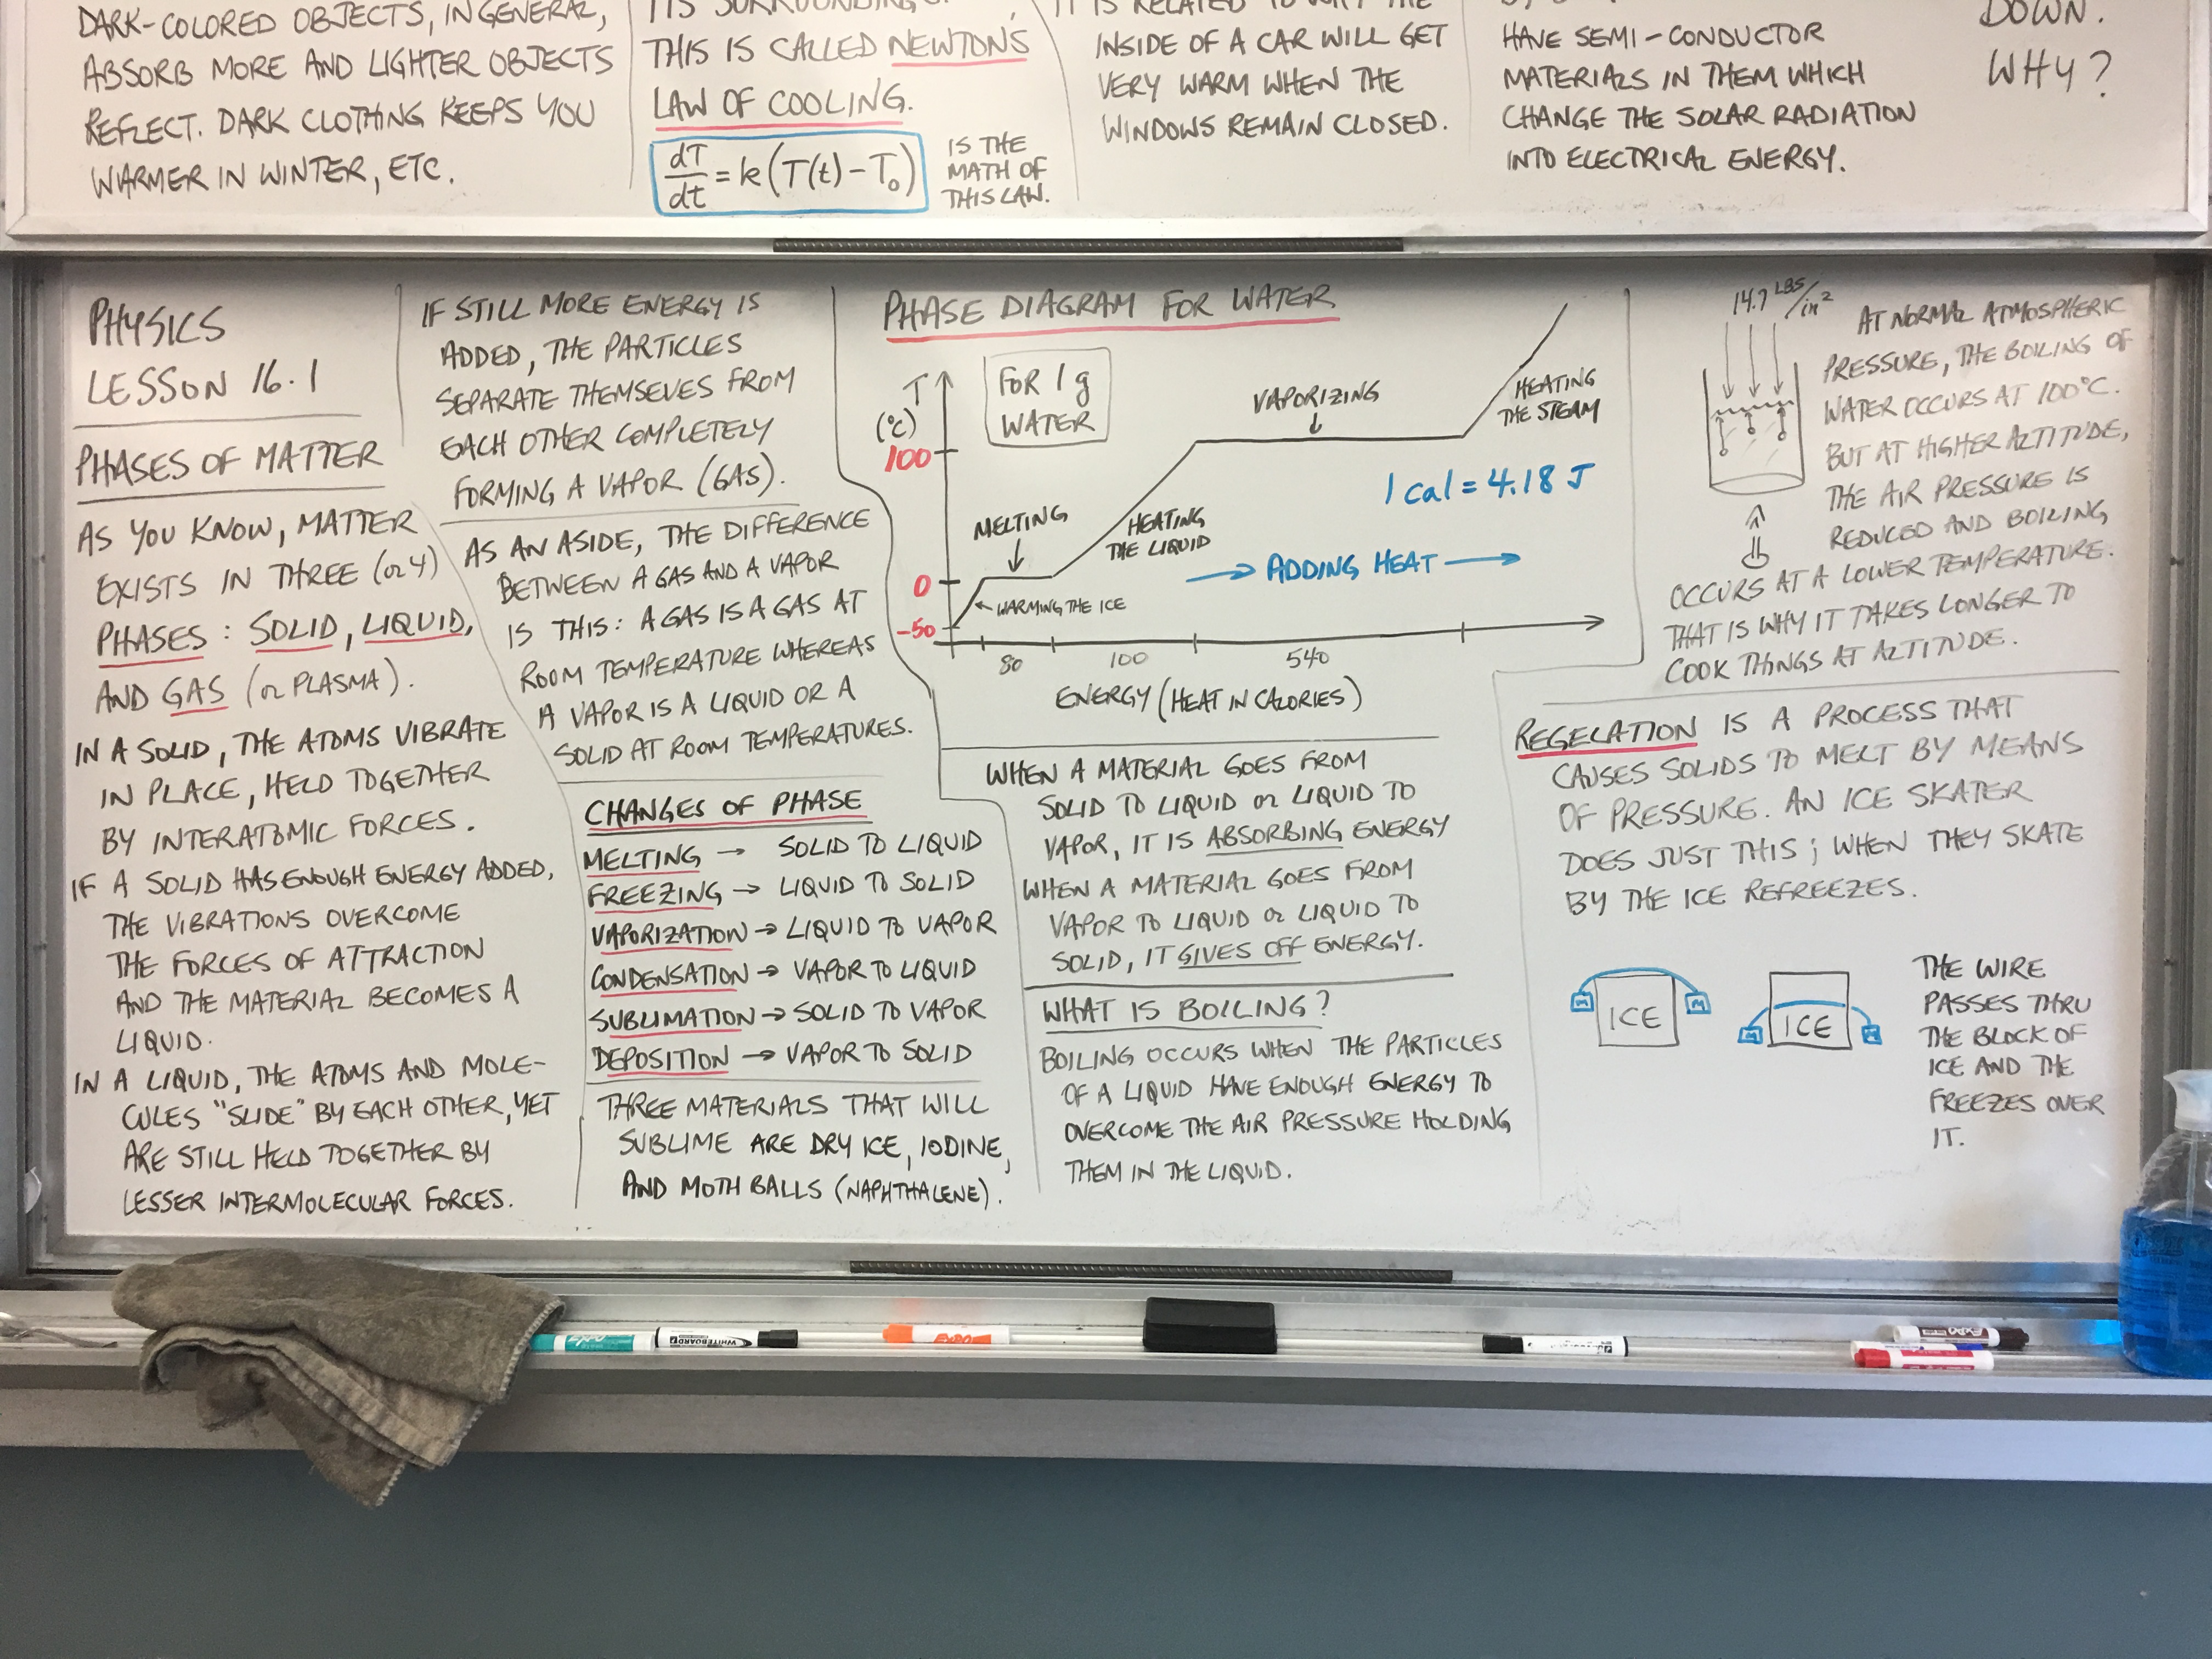 DARK-COLORED OBJECTS, IN GENERAL,
ABSORB MORE AND LIGHTER OBJECTS
REFLECT. DARK CLOTHING KEEPS YOU
WARMER IN WINTER, ETC.
ITS SURROUNDINGS.
THIS IS CALLED NEWTONS
LAW OF COOLING.
dT/dt = k(T(t) - T₀)
IS THE
MATH OF
THIS LAW.
IT IS RELATED TO WHY THE
INSIDE OF A CAR WILL GET
VERY WARM WHEN THE
WINDOWS REMAIN CLOSED.
HAVE SEMI-CONDUCTOR
MATERIALS IN THEM WHICH
CHANGE THE SOLAR RADIATION
INTO ELECTRICAL ENERGY.
DOWN.
WHY?
PHYSICS
LESSON 16.1
PHASES OF MATTER
AS YOU KNOW, MATTER
EXISTS IN THREE (or 4)
PHASES: SOLID, LIQUID,
AND GAS (or PLASMA).
IN A SOLID, THE ATOMS VIBRATE
IN PLACE, HELD TOGETHER
BY INTERATOMIC FORCES.
IF A SOLID HAS ENOUGH ENERGY ADDED,
THE VIBRATIONS OVERCOME
THE FORCES OF ATTRACTION
AND THE MATERIAL BECOMES A
LIQUID.
IN A LIQUID, THE ATOMS AND MOLE-
CULES "SLIDE" BY EACH OTHER, YET
ARE STILL HELD TOGETHER BY
LESSER INTERMOLECULAR FORCES.
IF STILL MORE ENERGY IS
ADDED, THE PARTICLES
SEPARATE THEMSEVES FROM
EACH OTHER COMPLETELY
FORMING A VAPOR (GAS).
AS AN ASIDE, THE DIFFERENCE
BETWEEN A GAS AND A VAPOR
IS THIS: A GAS IS A GAS AT
ROOM TEMPERATURE WHEREAS
A VAPOR IS A LIQUID OR A
SOLID AT ROOM TEMPERATURES.
CHANGES OF PHASE
MELTING → SOLID TO LIQUID
FREEZING → LIQUID TO SOLID
VAPORIZATION → LIQUID TO VAPOR
CONDENSATION → VAPOR TO LIQUID
SUBLIMATION → SOLID TO VAPOR
DEPOSITION → VAPOR TO SOLID
THREE MATERIALS THAT WILL
SUBLIME ARE DRY ICE, IODINE,
AND MOTH BALLS (NAPHTHALENE).
PHASE DIAGRAM FOR WATER
T
(°C)
FOR 1g
WATER
100
0
-50
WARMING THE ICE
MELTING
HEATING
THE LIQUID
VAPORIZING
HEATING
THE STEAM
1 cal = 4.18 J
→ ADDING HEAT →
80
100
540
ENERGY (HEAT IN CALORIES)
WHEN A MATERIAL GOES FROM
SOLID TO LIQUID or LIQUID TO
VAPOR, IT IS ABSORBING ENERGY
WHEN A MATERIAL GOES FROM
VAPOR TO LIQUID or LIQUID TO
SOLID, IT GIVES OFF ENERGY.
WHAT IS BOILING?
BOILING OCCURS WHEN THE PARTICLES
OF A LIQUID HAVE ENOUGH ENERGY TO
OVERCOME THE AIR PRESSURE HOLDING
THEM IN THE LIQUID.
14.7 LBS/in²
AT NORMAL ATMOSPHERIC
PRESSURE, THE BOILING OF
WATER OCCURS AT 100°C.
BUT AT HIGHER ALTITUDE,
THE AIR PRESSURE IS
REDUCED AND BOILING
OCCURS AT A LOWER TEMPERATURE.
THAT IS WHY IT TAKES LONGER TO
COOK THINGS AT ALTITUDE.
REGELATION IS A PROCESS THAT
CAUSES SOLIDS TO MELT BY MEANS
OF PRESSURE. AN ICE SKATER
DOES JUST THIS; WHEN THEY SKATE
BY THE ICE REFREEZES.
M ICE M
M ICE M
THE WIRE
PASSES THRU
THE BLOCK OF
ICE AND THE
FREEZES OVER
IT.
WHITEBOARD
EXPO
EXPO